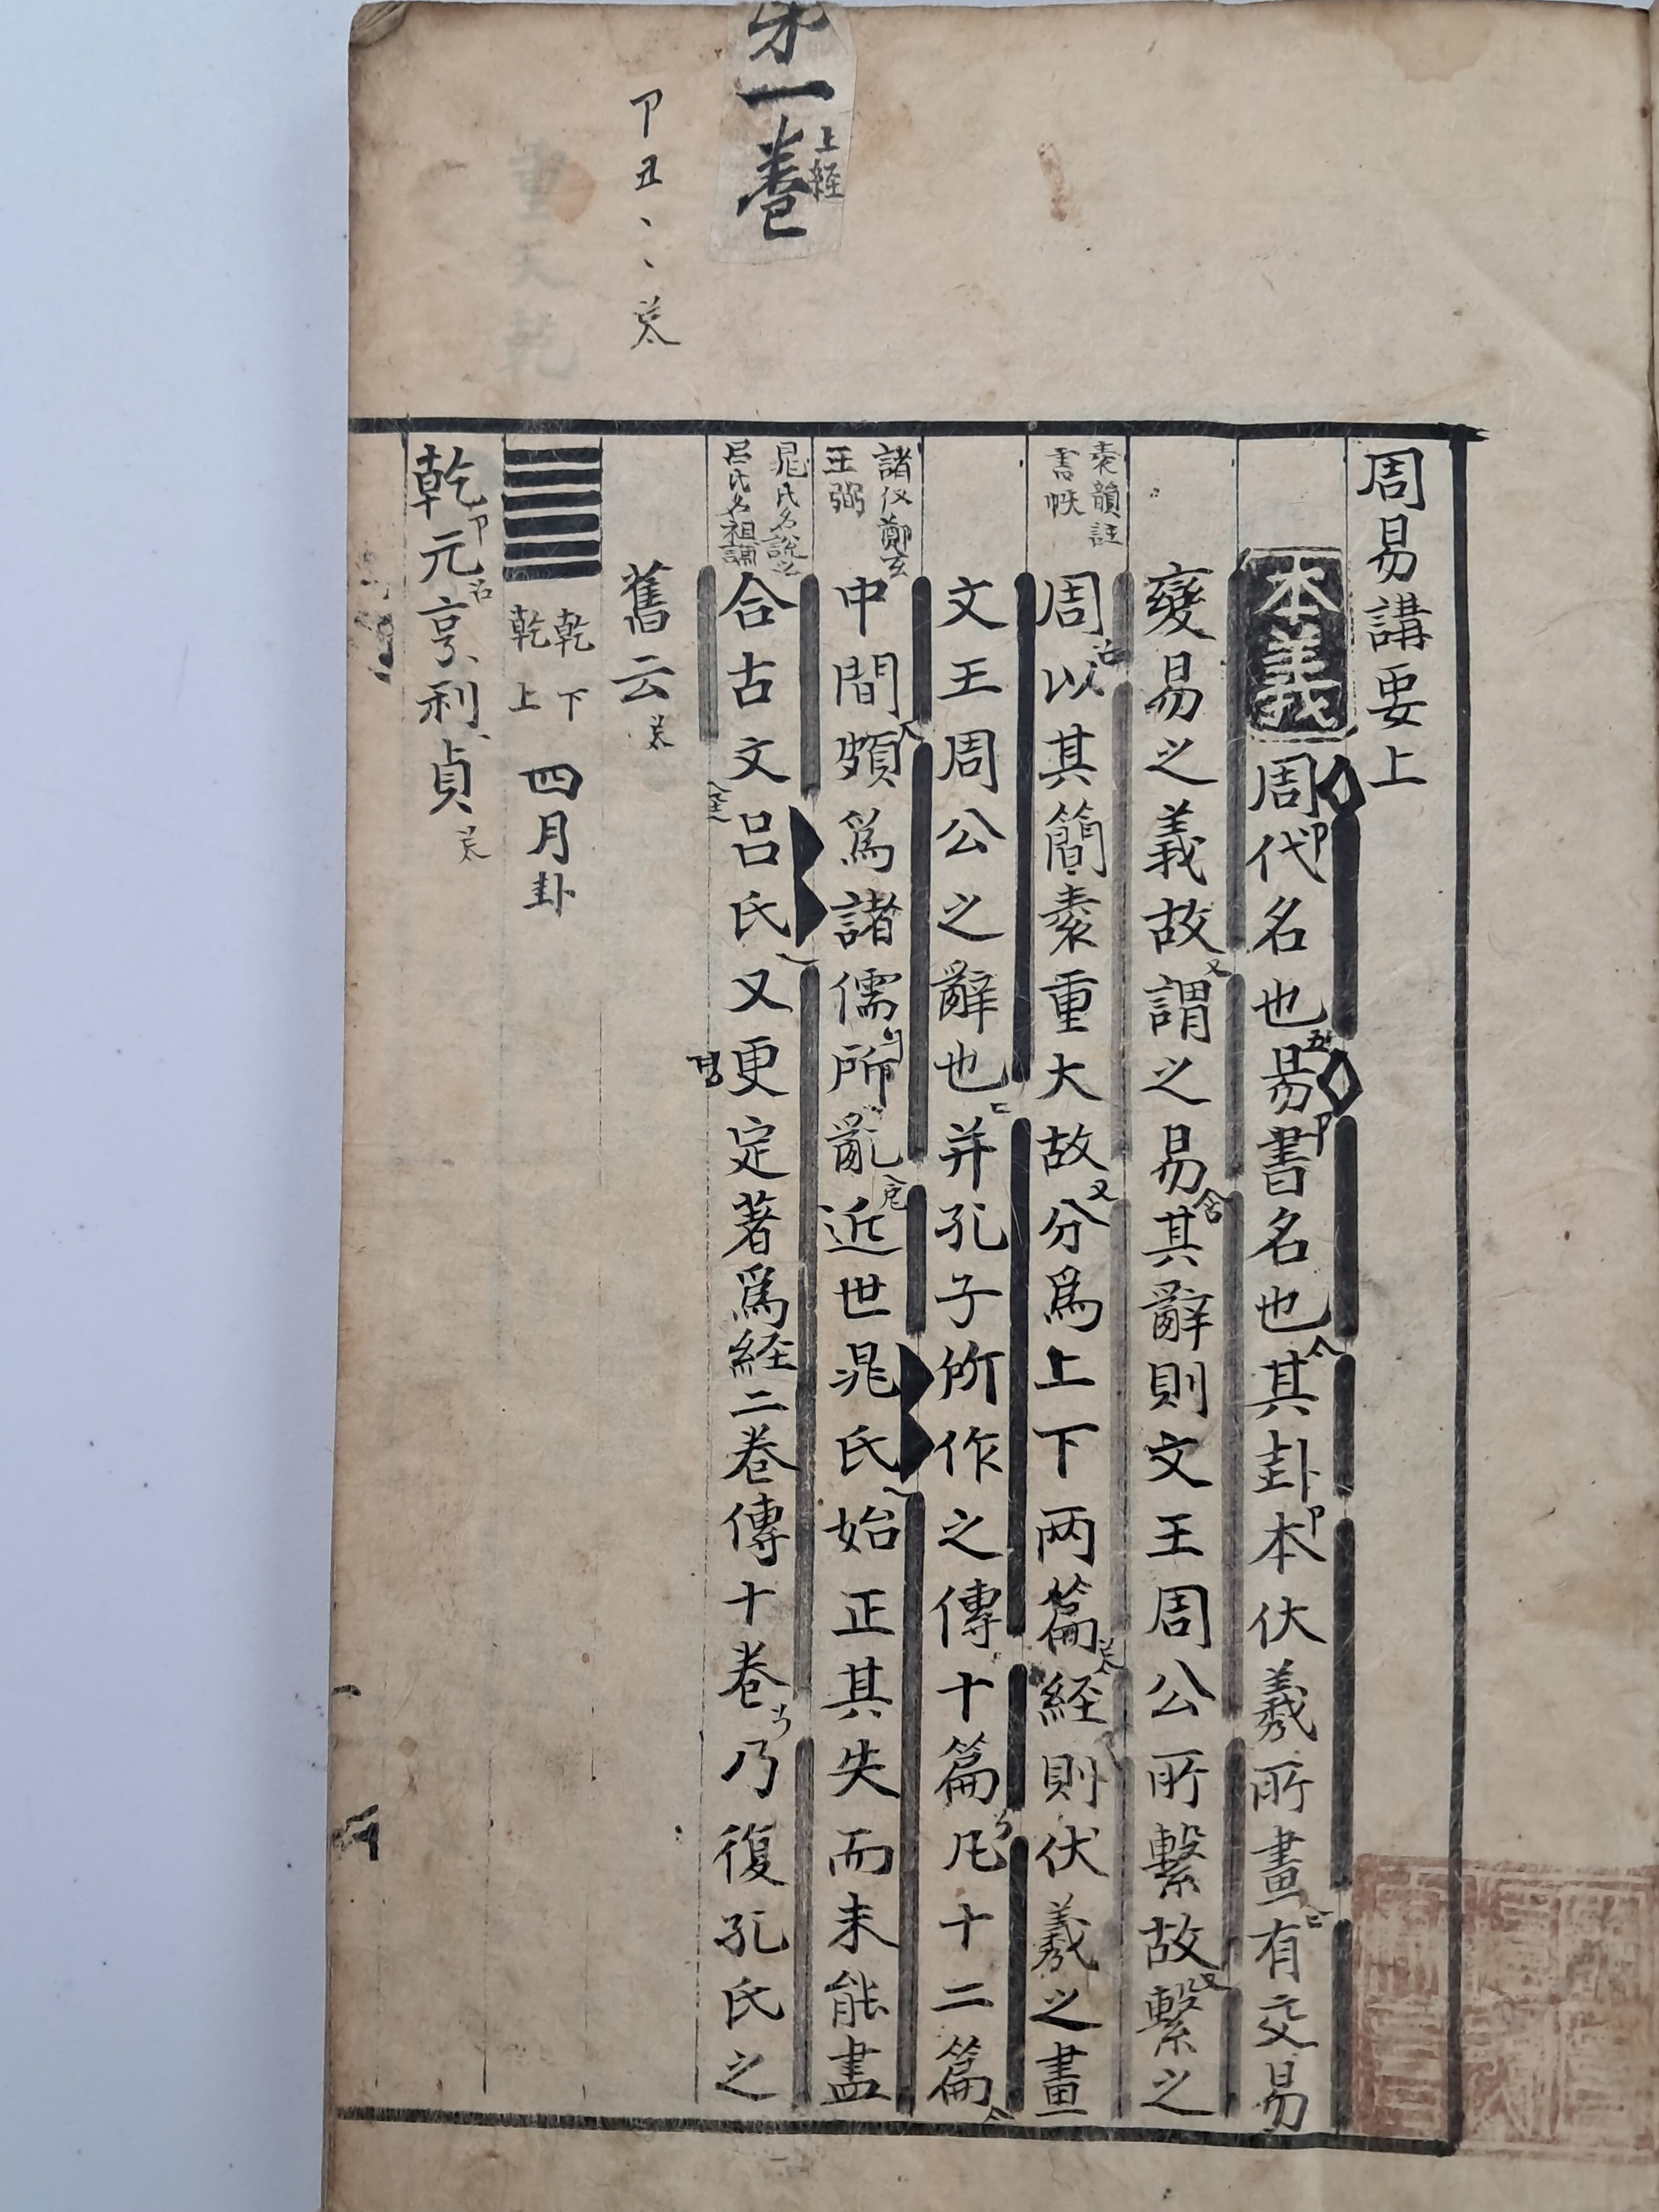 周易講要上
本義 周代名也易書名也其卦本伏羲所畫有交易
變易之義故謂之易其辭則文王周公所繫故繫之
素韻註
書帙
周以其簡素重大故分爲上下两篇経則伏羲之畫
文王周公之辭也并孔子所作之傳十篇凡十二篇
諸仅鄭玄
王弼
中間頗爲諸儒所亂近世晁氏始正其失而未能盡
晁氏名說之
吕氏名祖謙
合古文吕氏又更定著爲経二巻傳十巻乃復孔氏之
第一巻
上経
舊云
重天乾
乾下
乾上
四月卦
乾元亨利貞